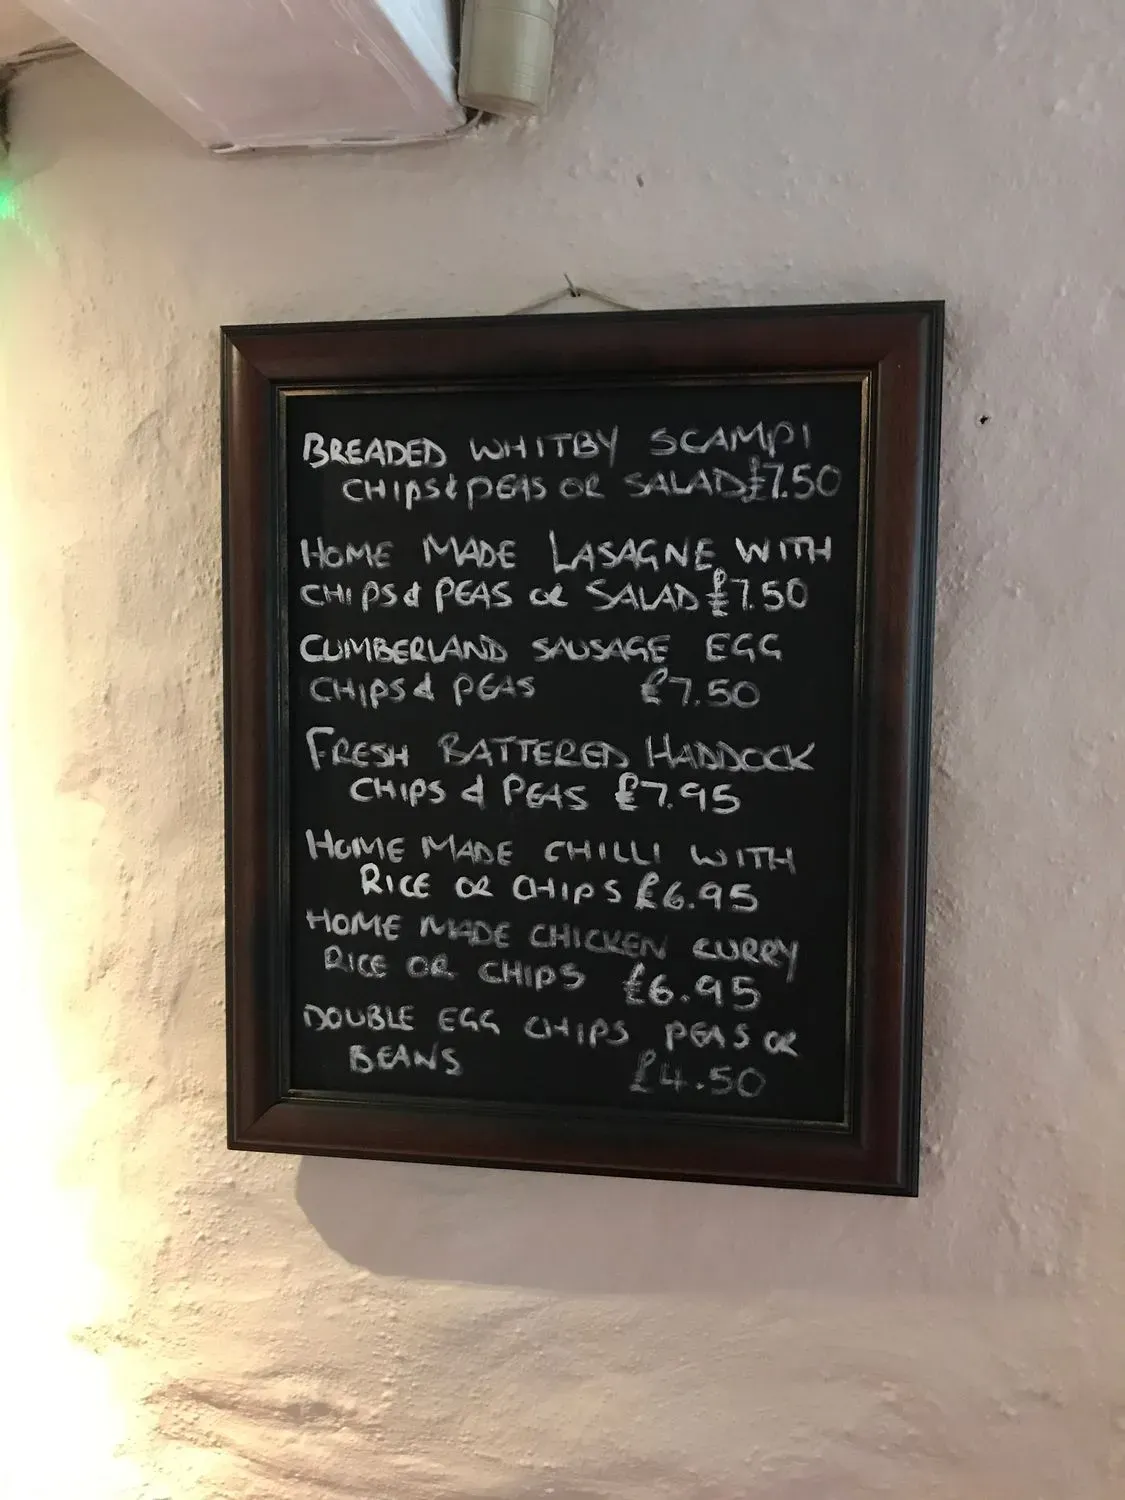 BREADED WHITBY SCAMPI
CHIPS & PEAS OR SALAD £7.50
HOME MADE LASAGNE WITH
CHIPS & PEAS OR SALAD £7.50
CUMBERLAND SAUSAGE EGG
CHIPS & PEAS £7.50
FRESH BATTERED HADDOCK
CHIPS & PEAS £7.95
HOME MADE CHILLI WITH
RICE OR CHIPS £6.95
HOME MADE CHICKEN CURRY
RICE OR CHIPS £6.95
DOUBLE EGG CHIPS PEAS OR
BEANS £4.50